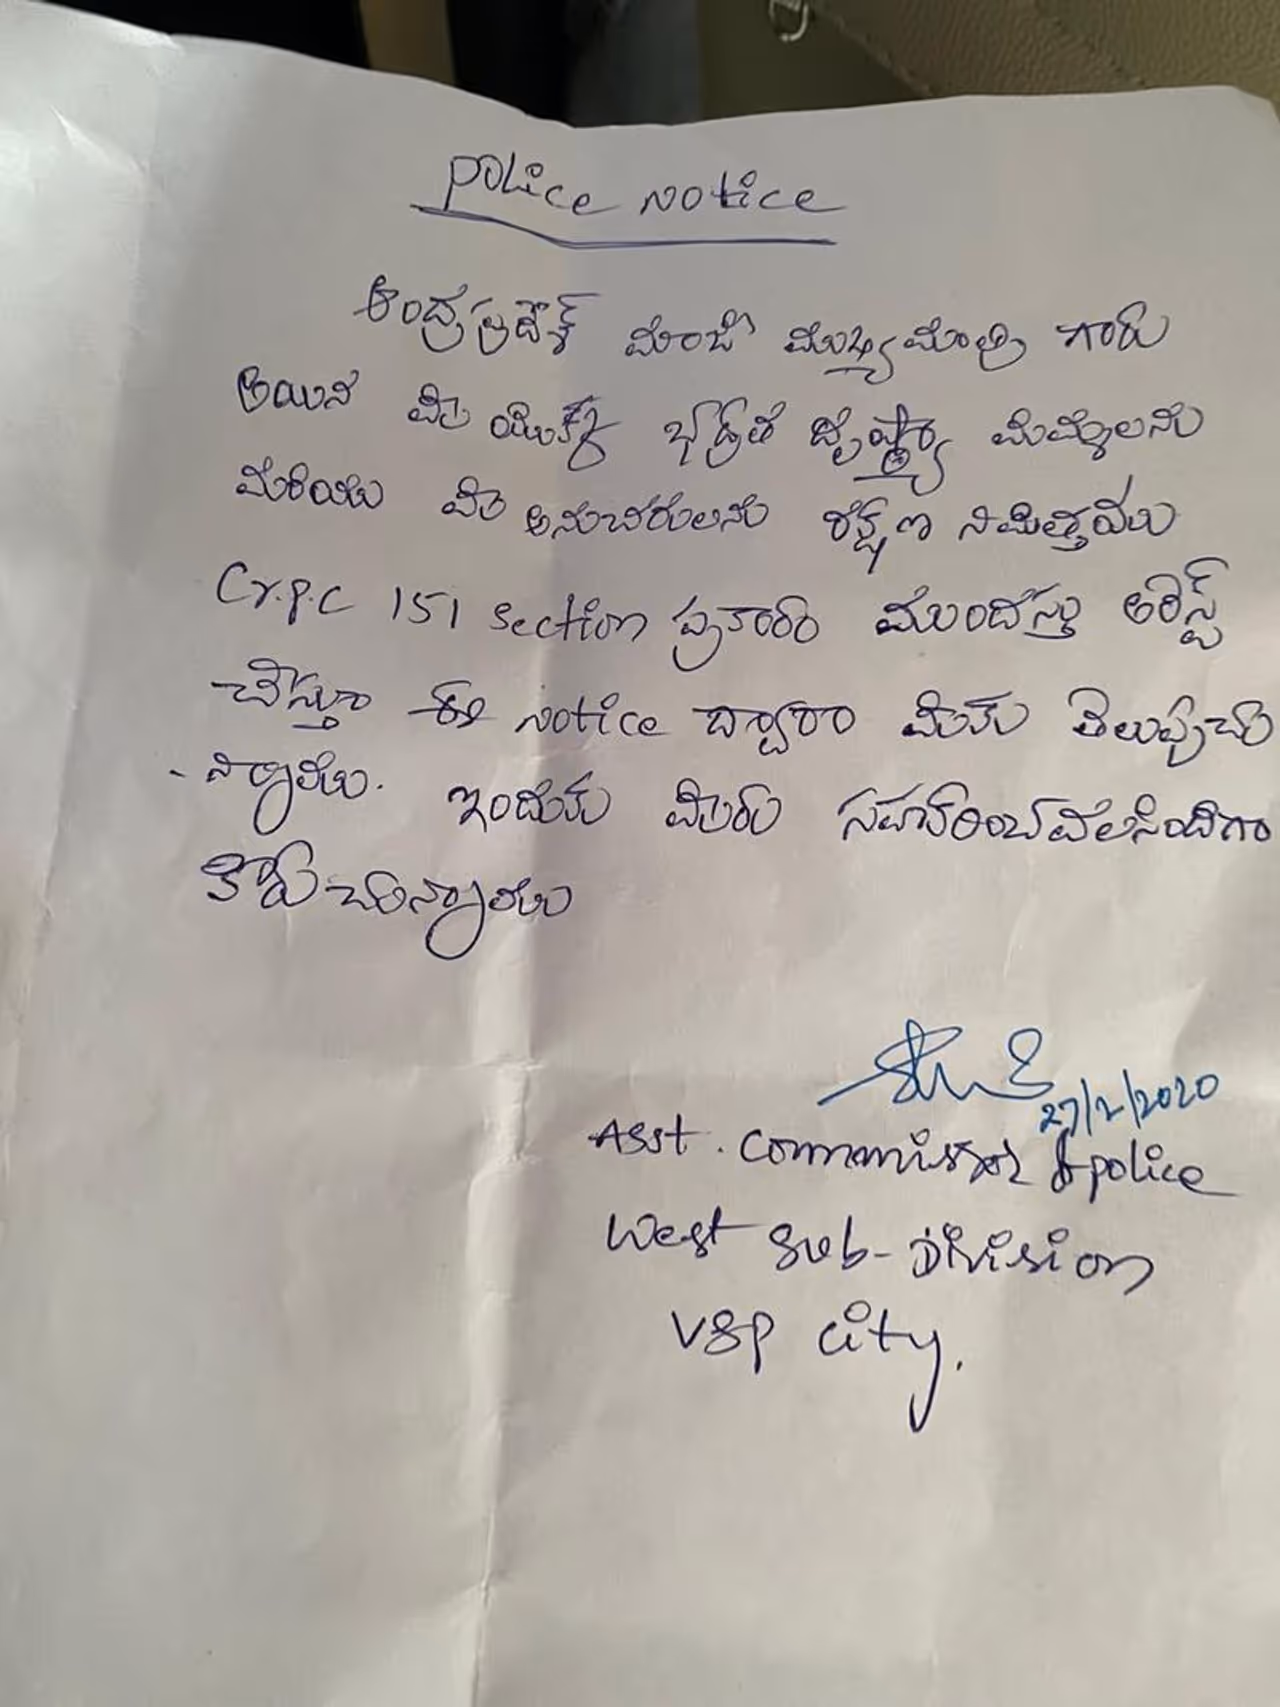 Police Notice
ఆంద్రప్రదేశ్ మాజీ ముఖ్యమంత్రి గారు
అయిన మీ యొక్క భద్రత దృష్ట్యా మిమ్మలను
మరియు మీ అనుచరులను రక్షణ నిమిత్తము
Cr.P.C 151 section ప్రకారం ముందస్తు అరెస్ట్
చేస్తూ ఈ Notice ద్వారా మీకు తెలుపుచు
-న్నాము. ఇందుకు మీరు సహకరించవలసిందిగా
కోరుచున్నాము
27/2/2020
Asst. Commissioner of police
West Sub-Division
VSP City.